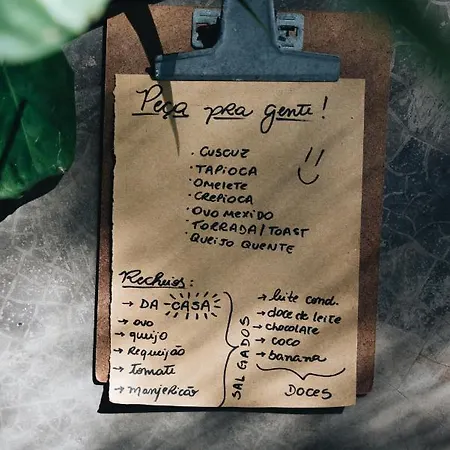 Peça pra gente!
• CUSCUZ
• TAPIOCA
• OMELETE
• CREPIOCA
• OVO MEXIDO
• TORRADA/TOAST
• QUEIJO QUENTE
Recheios:
→ DA CASA
→ ovo
→ queijo
→ Requeijão
→ tomate
→ manjericão
SALGADOS
→ leite cond.
→ doce de leite
→ chocolate
→ coco
→ banana
DOCES